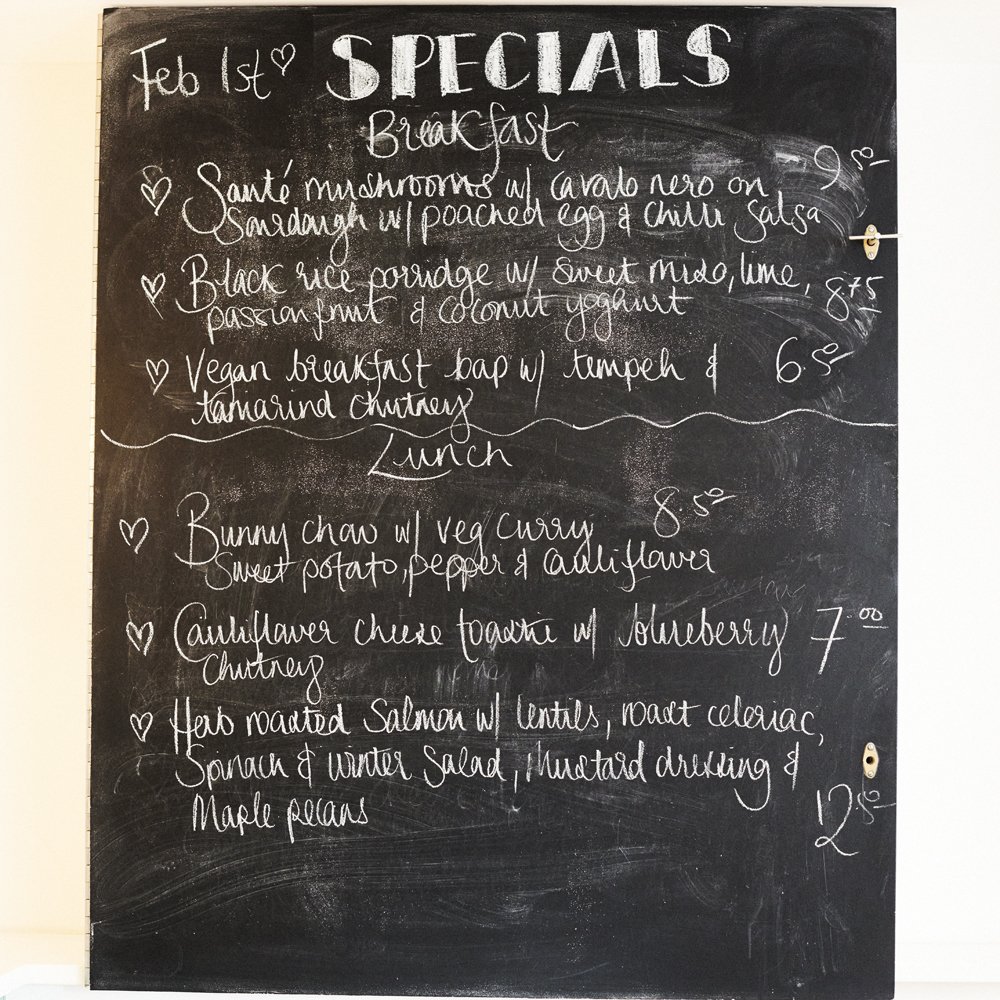 Feb 1st SPECIALS
Breakfast
Santé mushrooms w/ cavalo nero on 9.50
Sourdough w/ poached egg & chilli Salsa
Black rice porridge w/ sweet miso, lime, 8.75
passionfruit & coconut yoghurt
Vegan breakfast bap w/ tempeh & 6.50
tamarind chutney
Lunch
Bunny chow w/ veg curry 8.50
Sweet potato, pepper & Cauliflower
Cauliflower cheese toastie w/ blueberry 7.00
Chutney
Herb roasted Salmon w/ lentils, roast celeriac,
Spinach & winter Salad, Mustard dressing &
Maple pecans 12.50